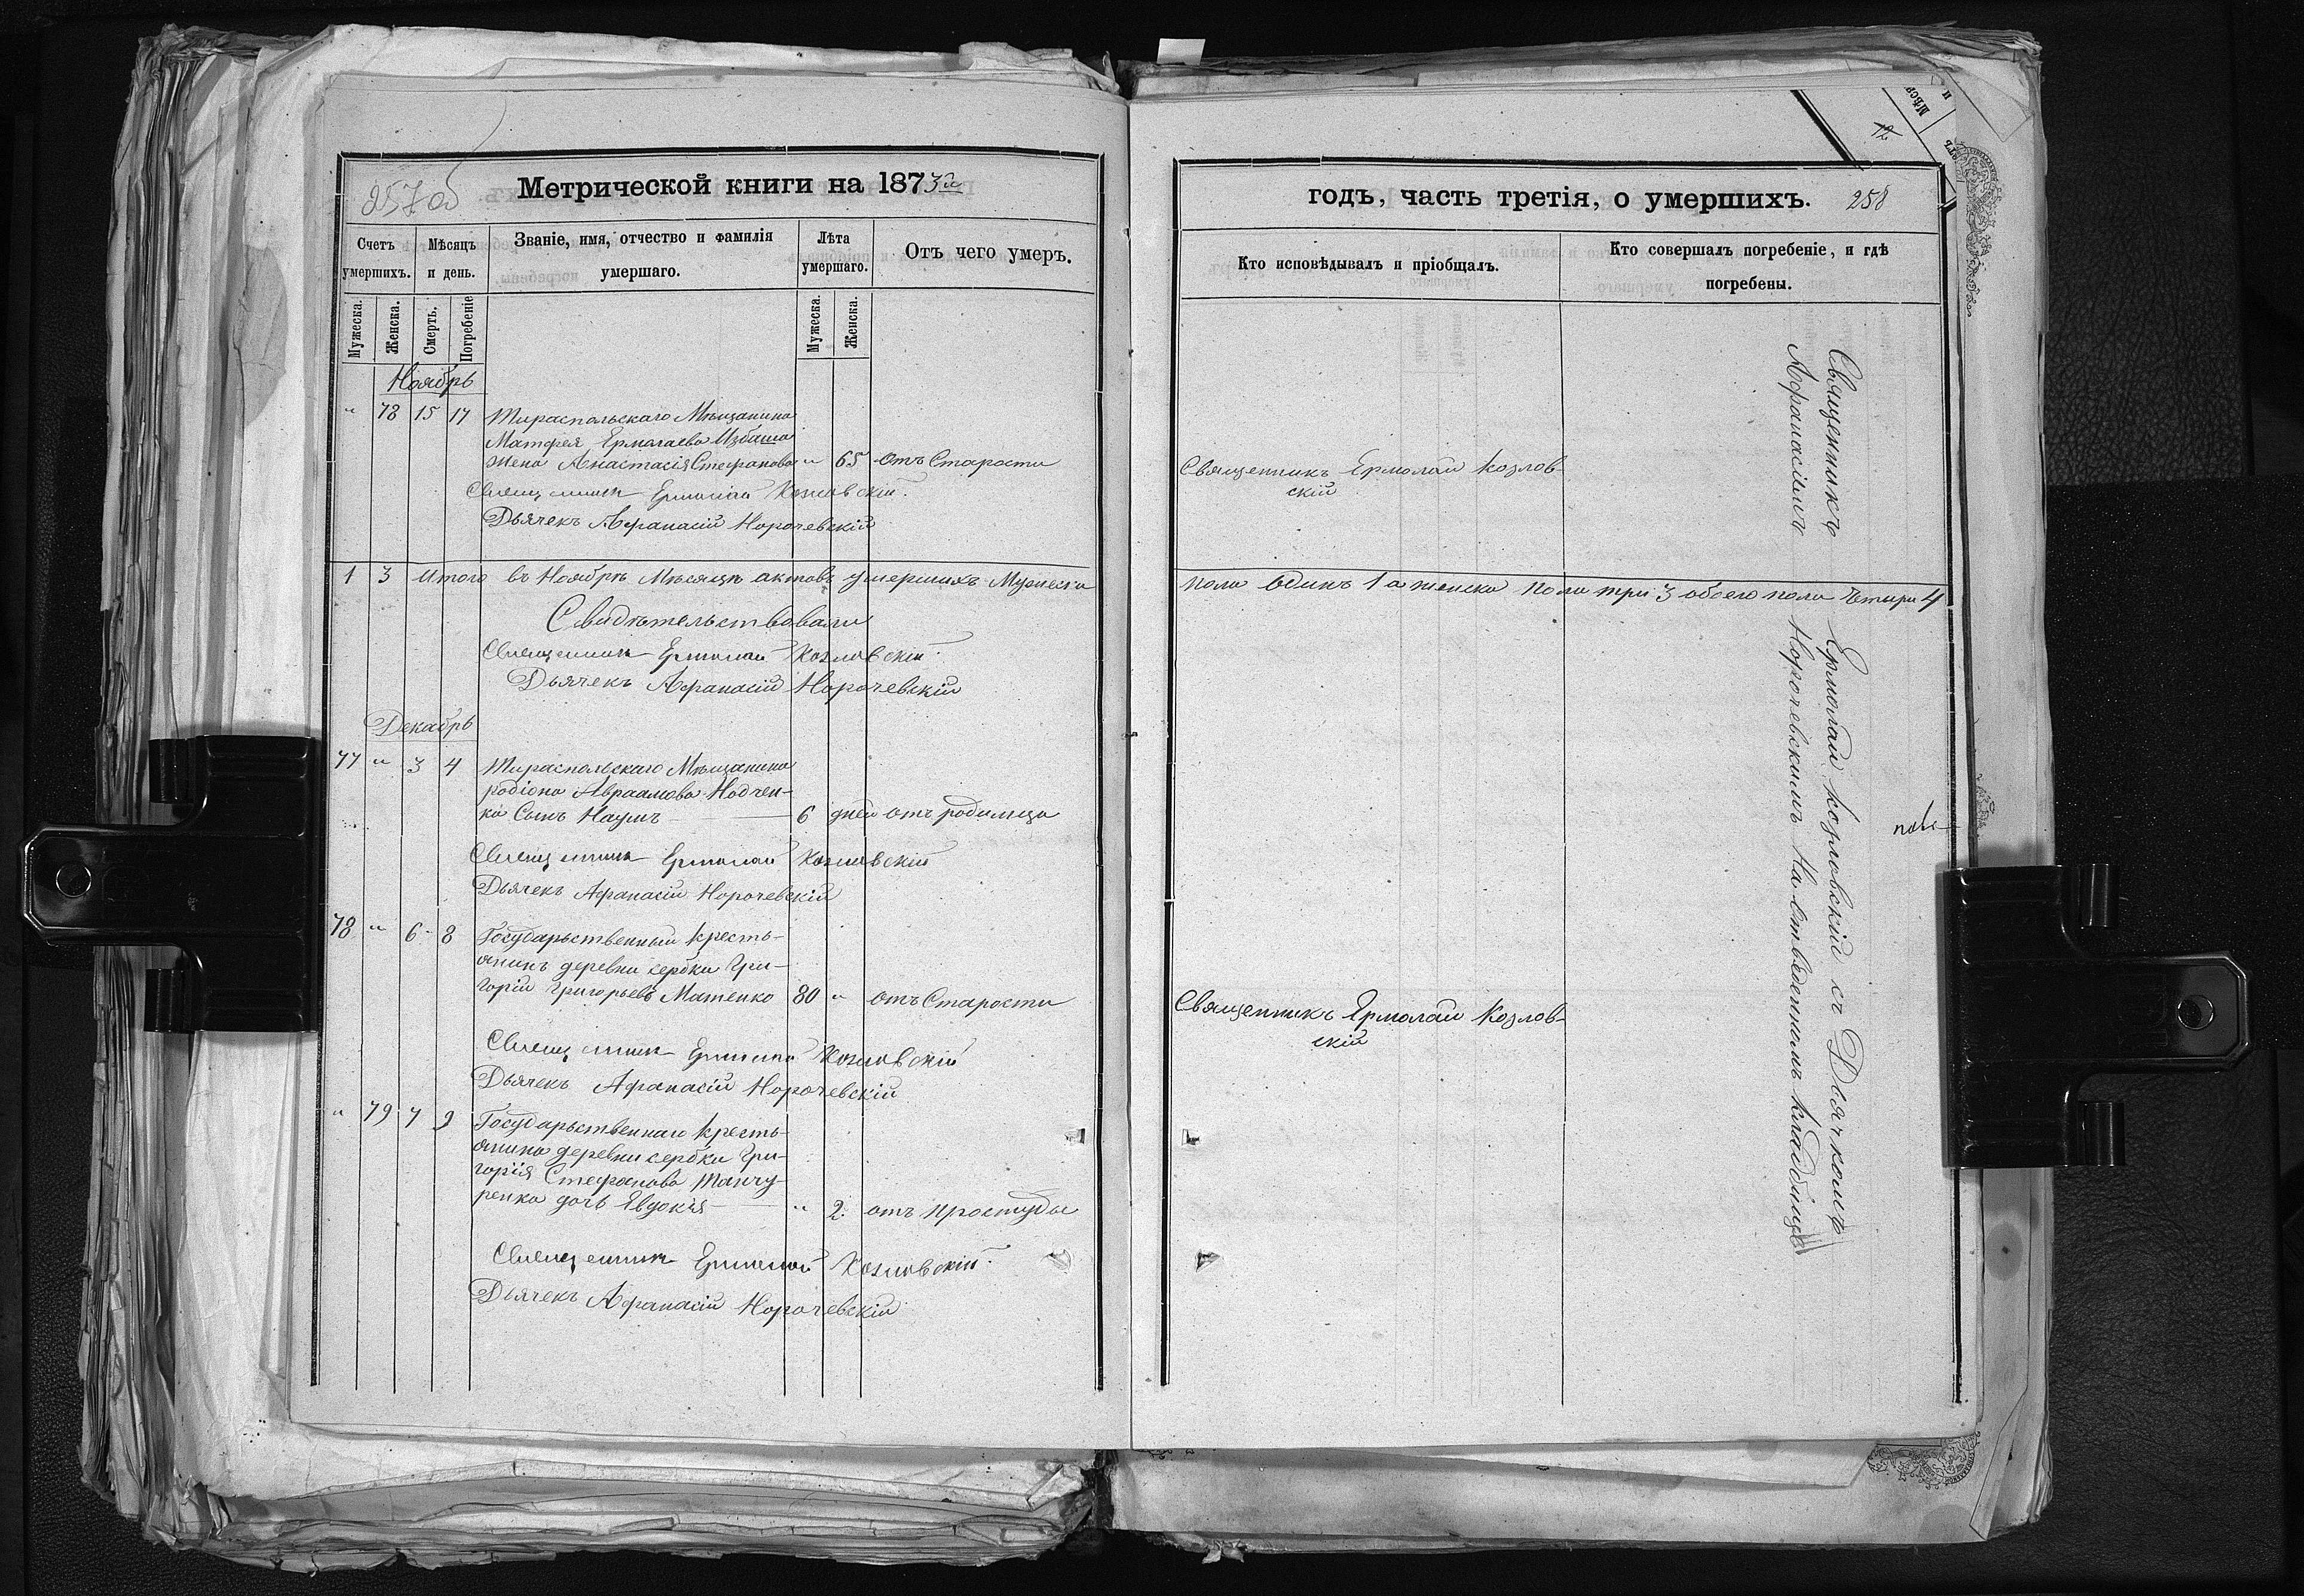 257 об
Метрической книги на 1873й
Счетъ умершихъ.
Мѣсяцъ и день.
Званіе, имя, отчество и фамилія умершаго.
Лѣта умершаго.
Отъ чего умеръ.
Мужеска.
Женска.
Смерть.
Погребеніе
Мужеска.
Женска.
Ноябрь
" 78 15 17 Тираспольскаго Мѣщанина
Матфея Ермолаева Избаша
жена Анастасія Стефанова " 65 отъ Старости
Священникъ Ермолай Козловскій.
Дьячекъ Афанасій Норочевскій
1 3 Итого въ Ноябрѣ Мѣсяцѣ актовъ умершихъ Мужеска
Свидѣтельствовали
Священникъ Ермолай Козловскій.
Дьячекъ Афанасій Норочевскій
Декабрь
77 " 3 4 Тираспольскаго Мѣщанина
Родіона Авраамова Нодчен-
ка Сынъ Наумъ 6 дней отъ родимца
Священникъ Ермолай Козловскій
Дьячекъ Афанасій Норочевскій
78 " 6 8 Государьственный кресть-
янинъ деревни Сербки Гри-
горій Григорьевъ Матенко 80 " отъ Старости
Священникъ Ермолай Козловскій
Дьячекъ Афанасій Норочевскій
" 79 7 9 Государьственнаго кресть-
янина деревни Сербки Гри-
горія Стефанова Танчу-
ренка дочь Евдокія " 2. отъ простуды
Священникъ Ермолай Козловскій.
Дьячекъ Афанасій Норочевскій
годъ, часть третія, о умершихъ. 258
Кто исповѣдывалъ и пріобщалъ.
Кто совершалъ погребеніе, и гдѣ погребены.
Священникъ Ермолай Козлов-
скій
пола одинъ 1 а женска пола три 3 обоего пола Чтыри 4
Священникъ Ермолай Козлов-
скій
Священникъ Ермолай Козловскій съ Дьячкомъ
Афанасіемъ Норочевскимъ На отведеномъ кладбищѣ
12